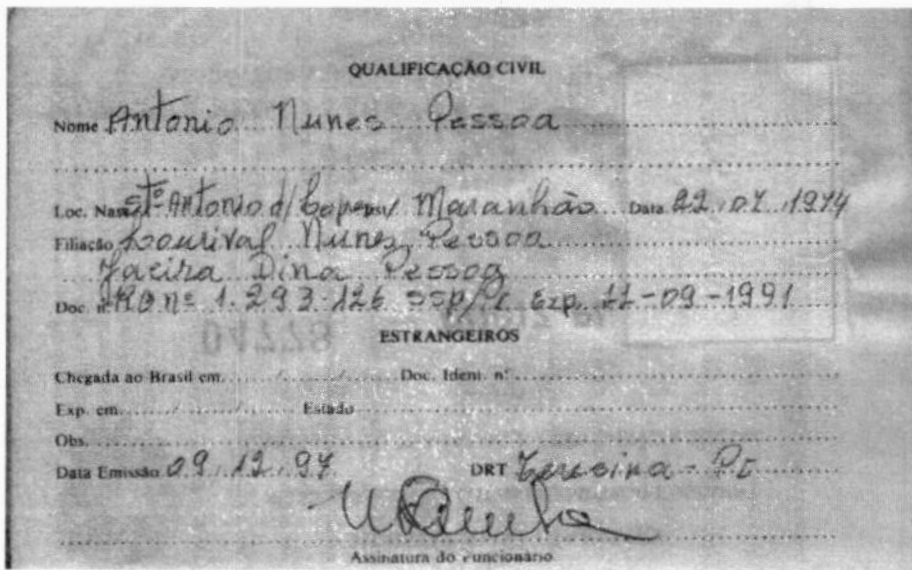 QUALIFICAÇÃO CIVIL
Nome Antonio Nunes Pessoa
Loc. Nasc. Stº Antonio d/ Maranhão Data 22.07.1974
Filiação Lourival Nunes Pessoa
Jacira Dina Pessoa
Doc. nº RG nº 1.293.126 SSP/PI Exp. 11-09-1991
ESTRANGEIROS
Chegada ao Brasil em / / Doc. Ident. nº
Exp. em / / Estado
Obs.
Data Emissão 09.12.97 DRT Teresina - PI
Assinatura do Funcionário